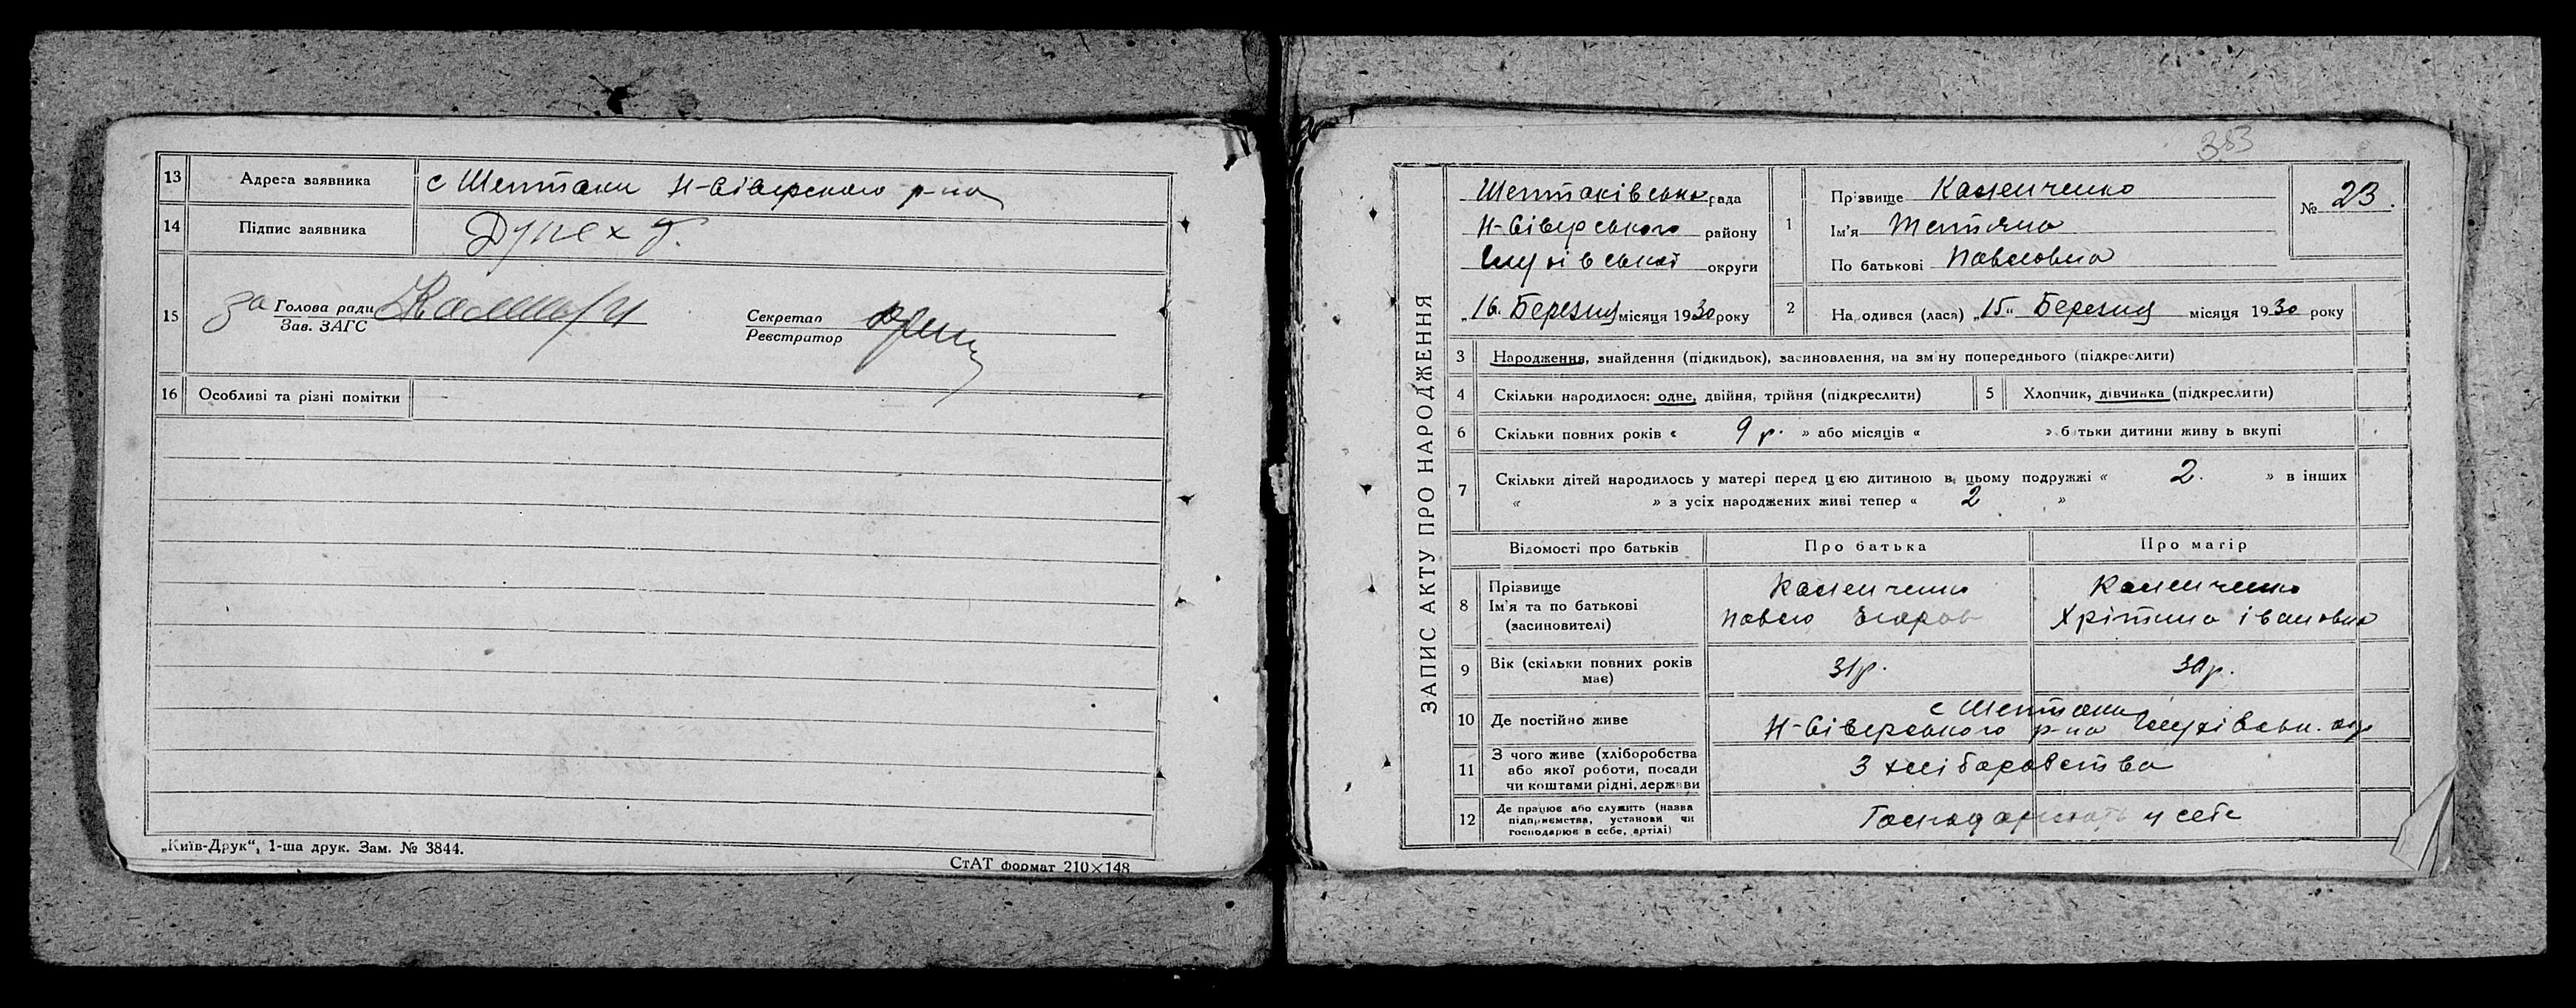 13 Адреса заявника с Шептаки Н-Сіверського р-на
14 Підпис заявника Дупех
15 за Голова ради
Зав. ЗАГС
Секретар
Реєстратор
16 Особливі та різні помітки
„Київ-Друк“, 1-ша друк. Зам. № 3844.
СтАТ формат 210×148
383
ЗАПИС АКТУ ПРО НАРОДЖЕННЯ
Шептаківська рада
Н-Сіверського району
Глухівської округи
„16„ Березня місяця 1930 року
1 Прізвище Каленченко
Ім'я Тетяна
По батькові Павловна
№ 23.
2 Народився (лася) „15„ Березня місяця 1930 року
3 Народження, знайдення (підкидьок), засиновлення, на зміну попереднього (підкреслити)
4 Скільки народилося: одне, двійня, трійня (підкреслити)
5 Хлопчик, дівчинка (підкреслити)
6 Скільки повних років « 9 р. » або місяців « » батьки дитини живуть вкупі
7 Скільки дітей народилось у матері перед цією дитиною в цьому подружжі « 2. » в інших
« » з усіх народжених живі тепер « 2 »
Відомості про батьків Про батька Про матір
8 Прізвище
Ім'я та по батькові
(засиновителі)
Каленченко
Павло
Каленченко
Хрітина івановна
9 Вік (скільки повних років
має)
31р. 30р.
10 Де постійно живе
с Шептаки
Н-Сіверського р-на Глухівськ. окр
11 З чого живе (хліборобства
або якої роботи, посади
чи коштами рідні, держави
З хліборобства
12 Де працює або служить (назва
підприємства, установи чи
господарює в себе, артілі)
Господарюють у себе